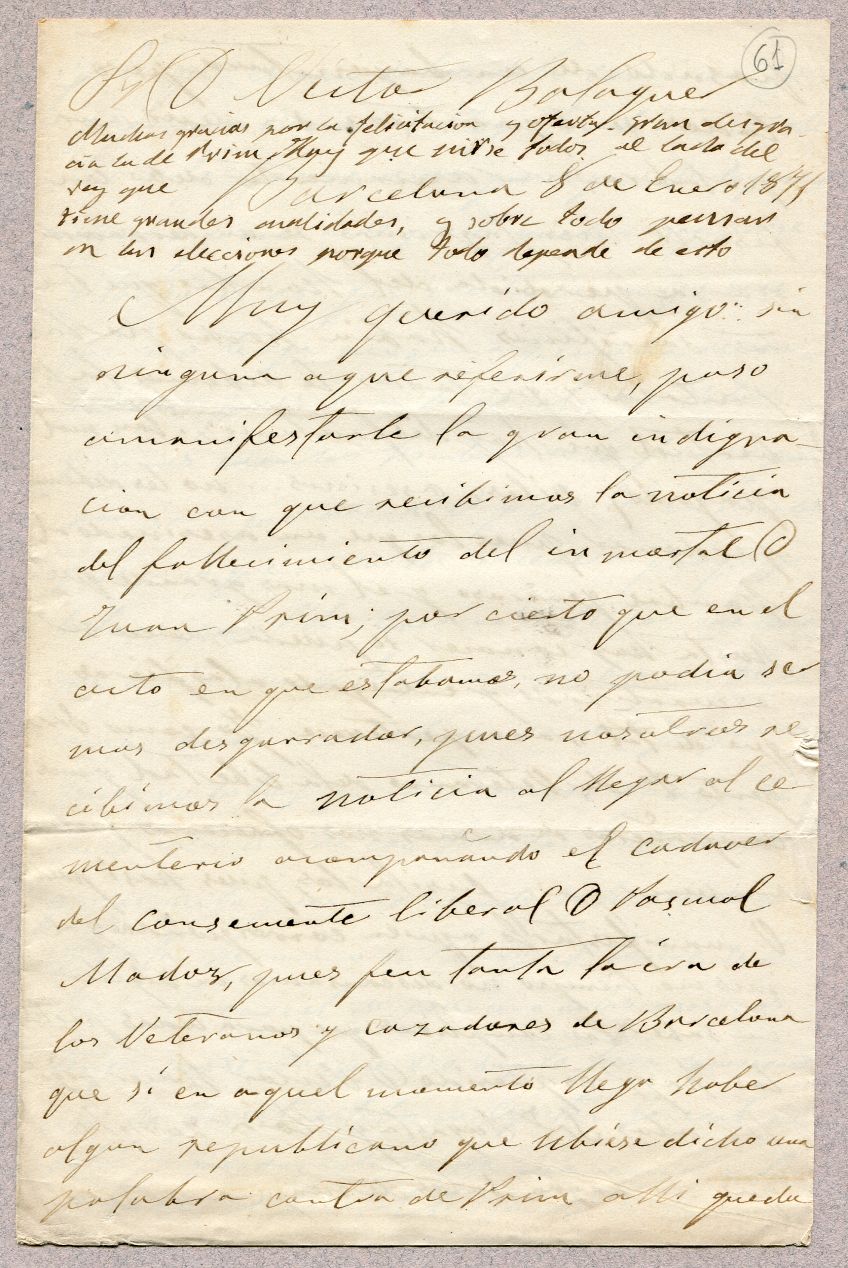 61
Sr D Victor Balaguer
Muchas gracias por la felicitacion y oferta. gran desgra-
cia la de Prim. Hay que unirse todos al lado del
rey que
Barcelona 8 de Enero 1871
tiene grandes cualidades, y sobre todo pensar
en las elecciones porque todo depende de esto
Muy querido amigo: sin
ninguna aque referirme, paso
amanifestarle la gran indigna-
cion con que recibimos la noticia
del fallecimiento del inmortal D
Juan Prim; por cierto que en el
acto en que estabamos, no podia ser
mas desgarrador, pues nosotros re
cibimos la noticia al llegar al ce
menterio acompañando el cadaver
del consemente liberal D Pascual
Madoz, pues feu tanta la ira de
los Veteranos y cazadores de Barcelona
que si en aquel momento llega haber
algun republicano que ubiese dicho una
palabra contra de Prim alli queda